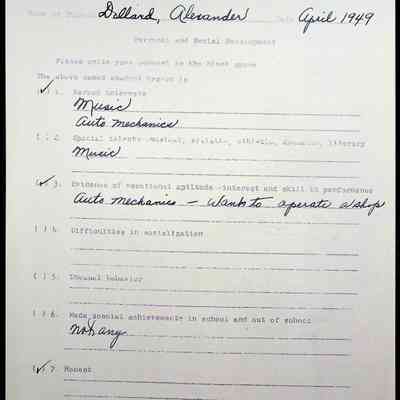 Name of Student Dollard, Alexander Date April 1949
Personal and Social Development
Please write your comment in the blank space
The above named student
(✓) 1. Marked interests
Music
Auto mechanics
( ) 2. Special talents musical, artistic, athletic, dramatic, literary
Music
(✓) 3. Evidence of vocational aptitude - interest and skill in performance
Auto mechanics - Wants to operate a shop
( ) 4. Difficulties in socialization
( ) 5. Unusual behavior
( ) 6. Made special achievements in school and out of school
Not any
(✓) 7. Honest